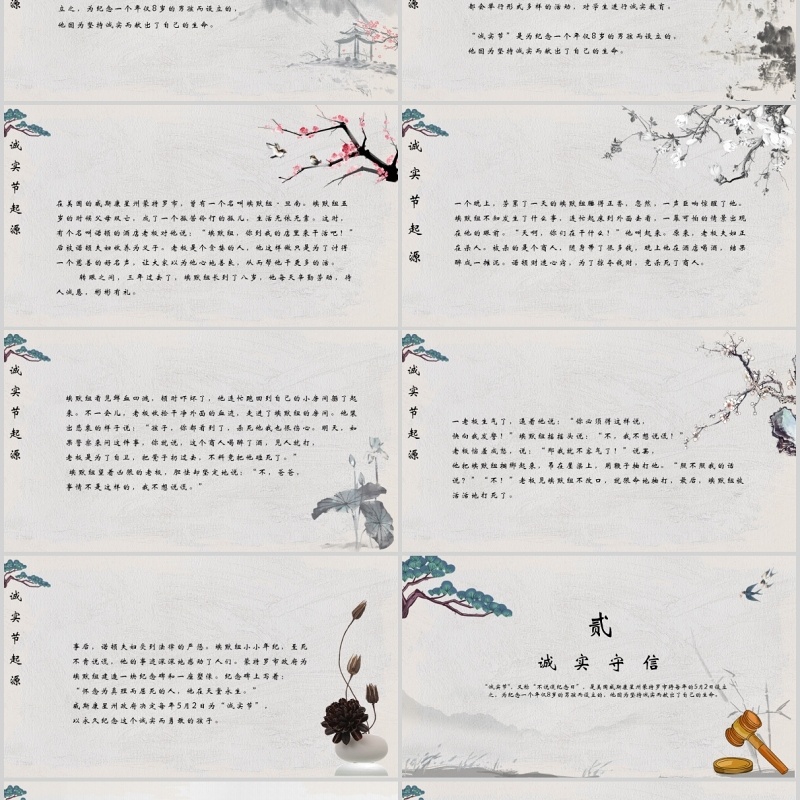 源
立之，为纪念一个年仅8岁的男孩而设立的，
他因为坚持诚实而献出了自己的生命。
源
都会举行形式多样的活动，对学生进行诚实教育。
“诚实节”是为纪念一个年仅8岁的男孩而设立的。
他因为坚持诚实而献出了自己的生命。
诚实节起源
在美国的威斯康星州蒙特罗市，曾有一个名叫埃默纽·旦南。埃默纽五
岁的时候父母双亡，成了一个孤苦伶仃的孤儿，生活无依无靠。这时，
有个名叫诺顿的酒店老板对他说：“埃默纽，你到我的店里来干活吧！”
后被诺顿夫妇收养为义子。老板是个贪婪的人，他这样做只是为了讨得
一个慈善的好名声，让大家以为他心地善良，从而帮他干更多的活。
转眼之间，三年过去了，埃默纽长到了八岁，他每天辛勤劳动，待
人诚恳，彬彬有礼。
诚实节起源
一个晚上，苦累了一天的埃默纽睡得正香，忽然，一声巨响惊醒了他。
埃默纽不知发生了什么事，连忙起来到外面去看，一幕可怕的情景出现
在他的眼前。“天啊，你们在干什么！”他叫起来。原来，老板夫妇正
在杀人。被杀的是个商人，随身带了很多钱，晚上他在酒店喝酒，结果
醉成一摊泥。诺顿财迷心窍，为了掠夺钱财，竟杀死了商人。
诚实节起源
埃默纽看见鲜血四溅，顿时吓坏了，他连忙跑回到自己的小房间躲了起
来。不一会儿，老板收拾干净外面的血迹，走进了埃默纽的房间。他装
出悲哀的样子说：“孩子，你都看到了，杀死他我也很伤心。明天，如
果警察来问这件事，你就说，这个商人喝醉了酒，见人就打，
老板是为了自卫，把凳子扔过去，不料竟把他砸死了。”
埃默纽望着凶恶的老板，胆怯却坚定地说：“不，爸爸，
事情不是这样的，我不想说谎。”
诚实节起源
一老板生气了，逼着他说：“你必须得这样说，
快向我发誓！”埃默纽摇摇头说：“不，我不想说谎！”
老板恼羞成怒，说：“那我就不客气了！”说罢，
他把埃默纽捆绑起来，吊在屋梁上，用鞭子抽打他。“照不照我的话
说？”“不！”老板见埃默纽不改口，就狠命地抽打，最后，埃默纽被
活活地打死了。
诚实节起源
事后，诺顿夫妇受到法律的严惩。埃默纽小小年纪，至死
不肯说谎，他的事迹深深地感动了人们。蒙特罗市政府为
埃默纽建造一块纪念碑和一座塑像。纪念碑上写着：
“怀念为真理而屈死的人，他在天堂永生。”
威斯康星州政府决定每年5月2日为“诚实节”，
以永久纪念这个诚实而勇敢的孩子。
贰
诚实守信
“诚实节”，又给“不说谎纪念日”，是美国威斯康星州蒙特罗市将每年的5月2日设立
之，为纪念一个年仅8岁的男孩而设立的，他因为坚持诚实而献出了自己的生命。